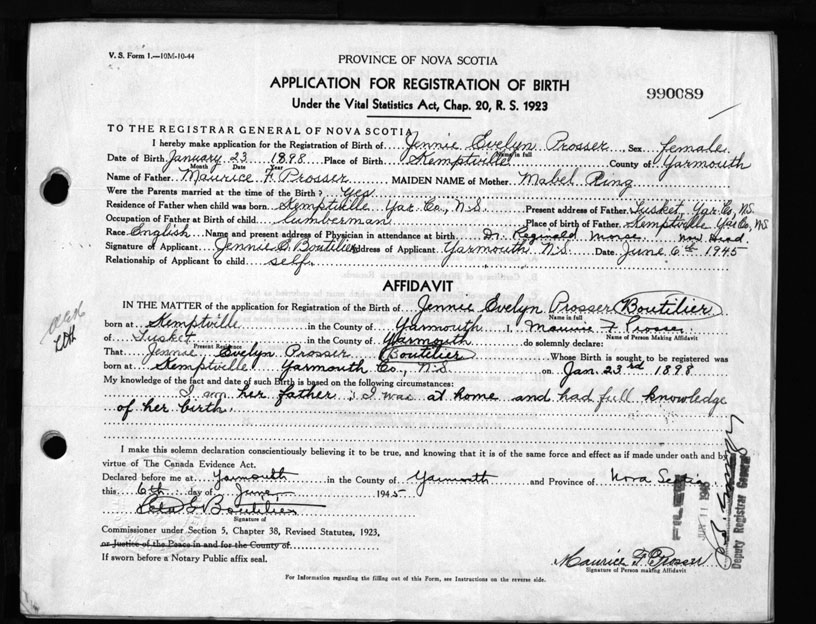 V. S. Form 1.—10M-10-44
PROVINCE OF NOVA SCOTIA
APPLICATION FOR REGISTRATION OF BIRTH
990089
Under the Vital Statistics Act, Chap. 20, R. S. 1923
TO THE REGISTRAR GENERAL OF NOVA SCOTIA
I hereby make application for the Registration of Birth of Jennie Evelyn Prosser Sex female
Name in full
Date of Birth January 23 1898 Place of Birth Kemptville County of Yarmouth
Month Date Year
Name of Father Maurice F. Prosser MAIDEN NAME of Mother Mabel Ring
Were the Parents married at the time of the Birth? Yes
Residence of Father when child was born Kemptville Yar. Co., N.S. Present address of Father Tusket, Yar. Co, N.S.
Occupation of Father at Birth of child Lumberman Place of birth of Father Kemptville Yar. Co, N.S
Race English Name and present address of Physician in attendance at birth Dr. Reginald now dead.
Signature of Applicant Jennie E. Boutilier Address of Applicant Yarmouth N.S. Date June 6th 1945
Relationship of Applicant to child self.
AFFIDAVIT
IN THE MATTER of the application for Registration of the Birth of Jennie Evelyn Prosser (Boutilier)
Name in full
born at Kemptville in the County of Yarmouth I, Maurice F. Prosser
Name of Person Making Affidavit
of Tusket in the County of Yarmouth do solemnly declare:
Present Residence
That Jennie Evelyn Prosser (Boutilier) Whose Birth is sought to be registered was
born at Kemptville Yarmouth Co., N.S. on Jan. 23rd 1898
My knowledge of the fact and date of such Birth is based on the following circumstances:
I am her father; I was at home and had full knowledge
of her birth.
I make this solemn declaration conscientiously believing it to be true, and knowing that it is of the same force and effect as if made under oath and by
virtue of The Canada Evidence Act.
Declared before me at Yarmouth in the County of Yarmouth and Province of Nova Scotia
this 6th day of June 1945
Boutilier
Signature of
Commissioner under Section 5, Chapter 38, Revised Statutes, 1923,
or Justice of the Peace in and for the County of
If sworn before a Notary Public affix seal.
FILED
11 1945
Deputy Registrar General
Maurice F. Prosser
Signature of Person making Affidavit
For Information regarding the filling out of this Form, see Instructions on the reverse side.